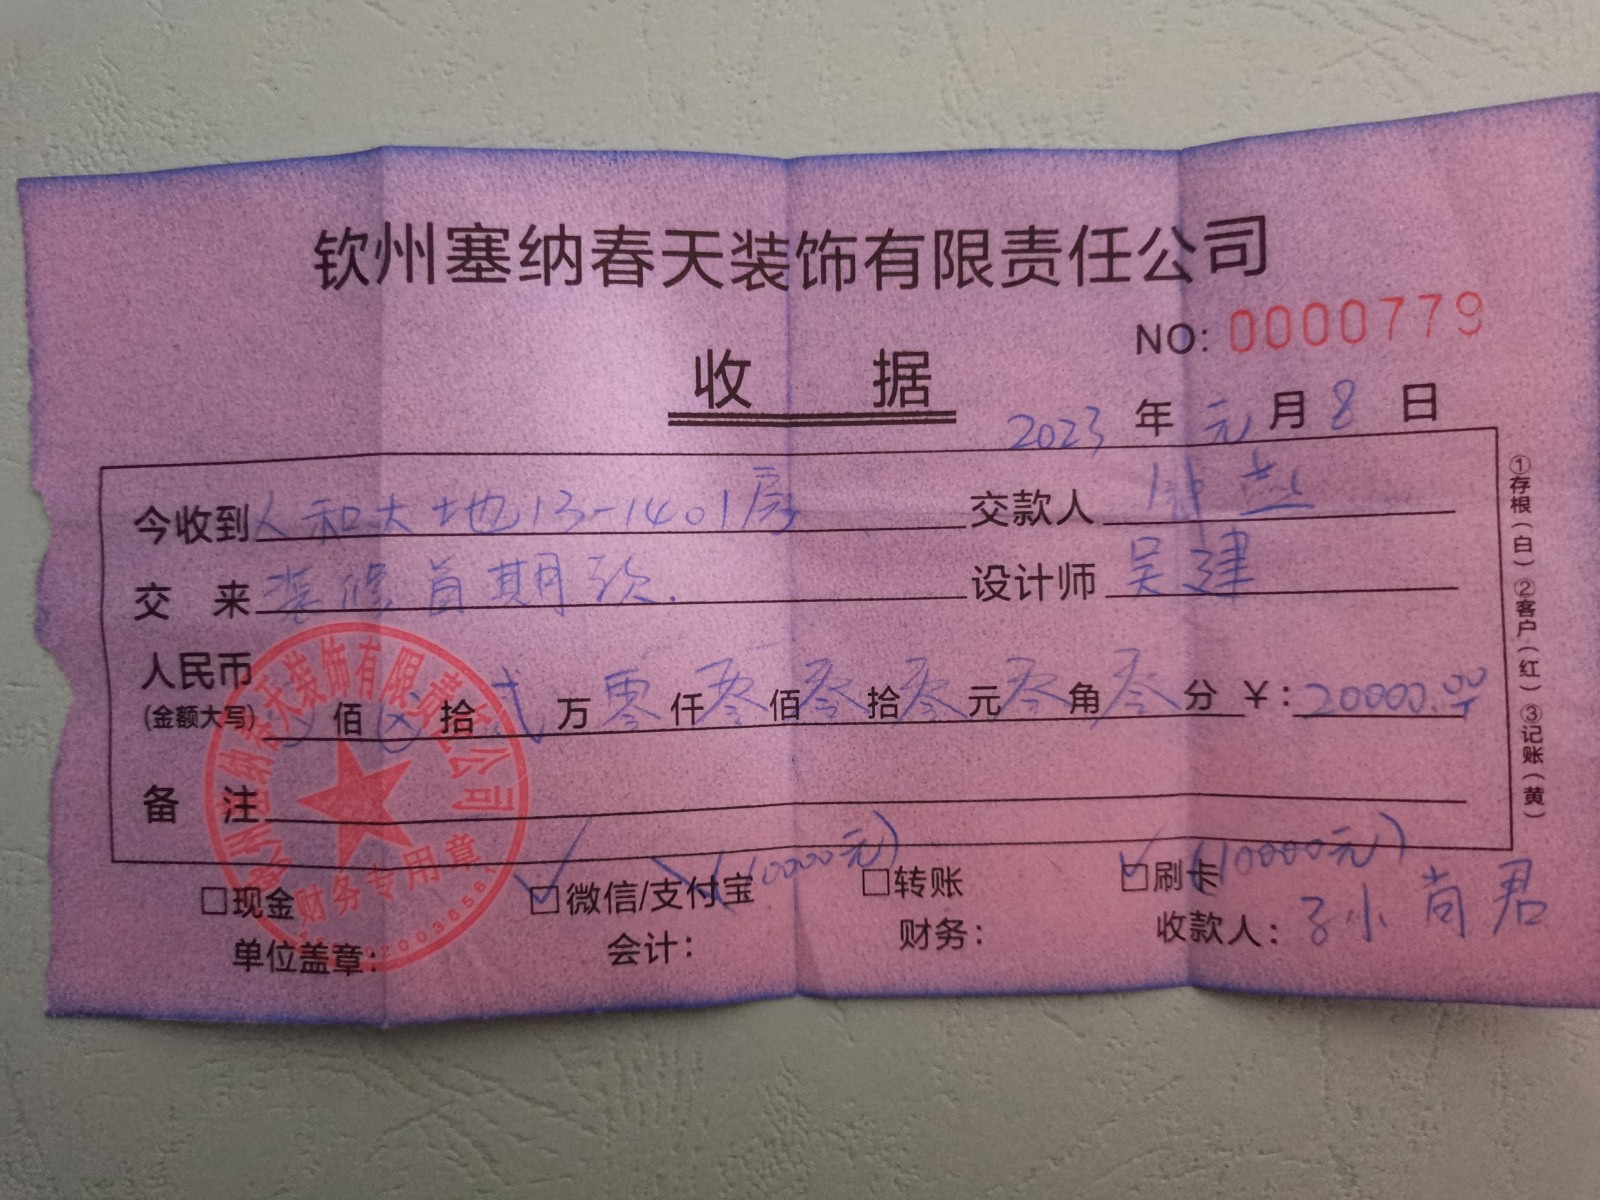 钦州塞纳春天装饰有限责任公司
NO: 0000779
收 据
2023 年 元 月 8 日
今收到 人和大地13-1401房 交款人
交 来 装修首期款. 设计师 吴建
人民币(金额大写) ⊗ 佰 ⊗ 拾 贰 万 零 仟 零 佰 零 拾 零 元 零 角 零 分 ¥: 20000.00
备 注
□现金 ☑微信/支付宝 (10000元) □转账 ☑刷卡 (10000元)
单位盖章: 会计: 财务: 收款人:
①存根(白) ②客户(红) ③记账(黄)
天装饰有限责任公司
财务专用章